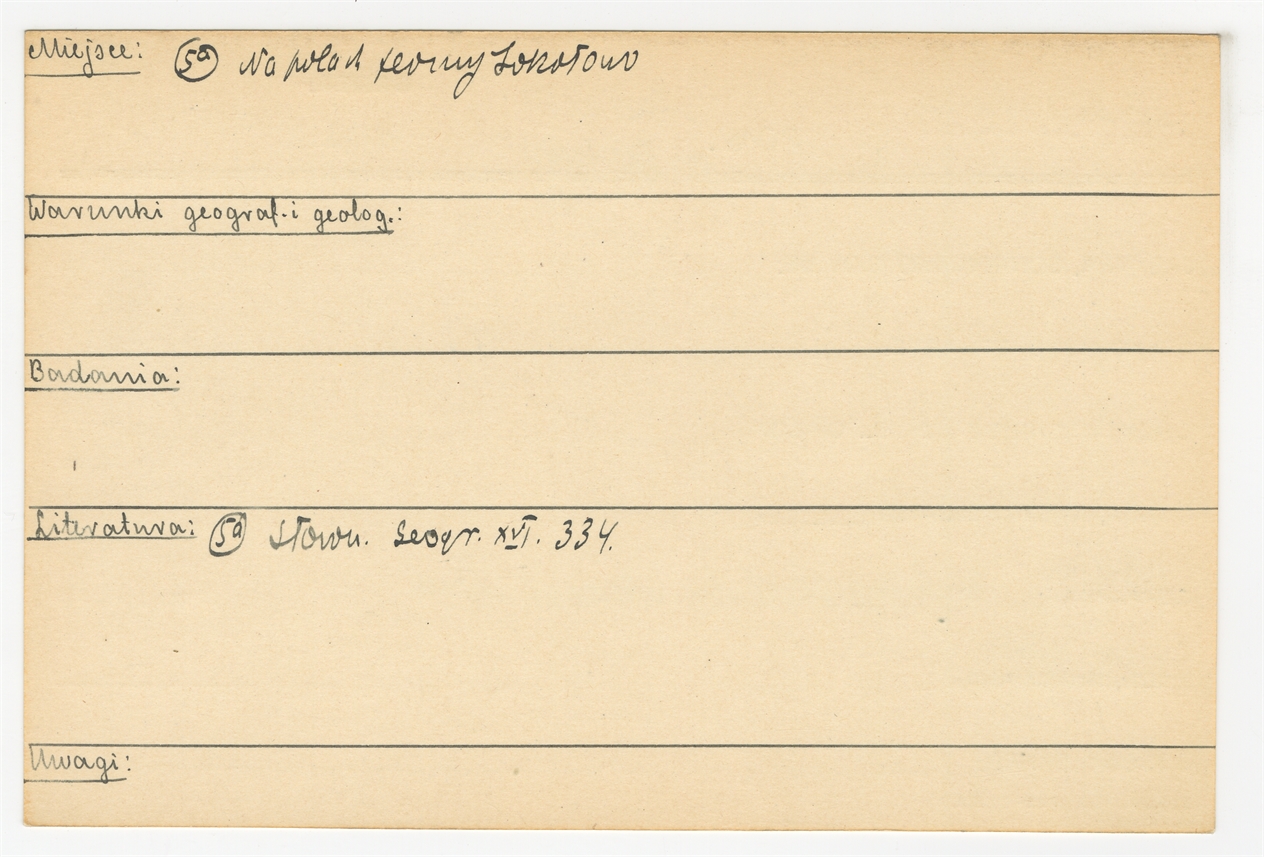 Miejsce: 5a Na polach fermy Sokołowo
Warunki geograf. i geolog.:
Badania:
Literatura: 5a Słown. Geogr. XVI. 334.
Uwagi: